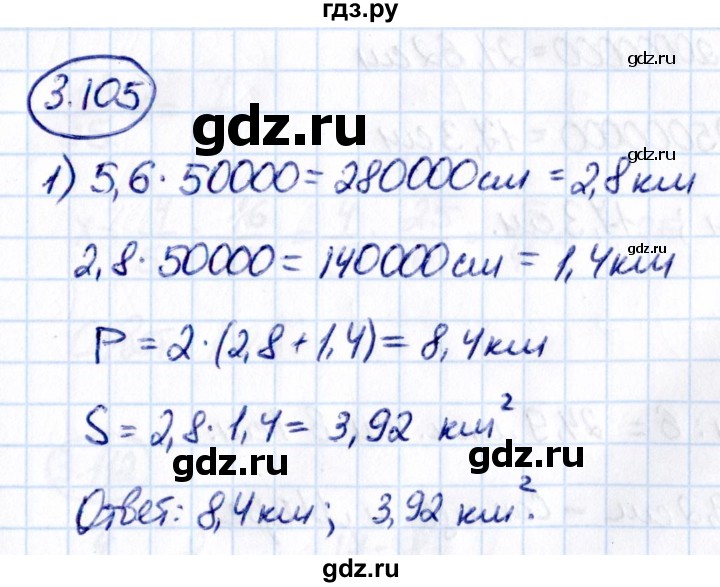 гдз.ру
gdz.ru
3.105
gdz.ru
1) 5,6 · 50000 = 280000 см = 2,8 км
gdz.ru
2,8 · 50000 = 140000 см = 1,4 км
P = 2 · (2,8 + 1,4) = 8,4 км
S = 2,8 · 1,4 = 3,92 км²
gdz.ru gdz.ru
Ответ: 8,4 км; 3,92 км².
gdz.ru